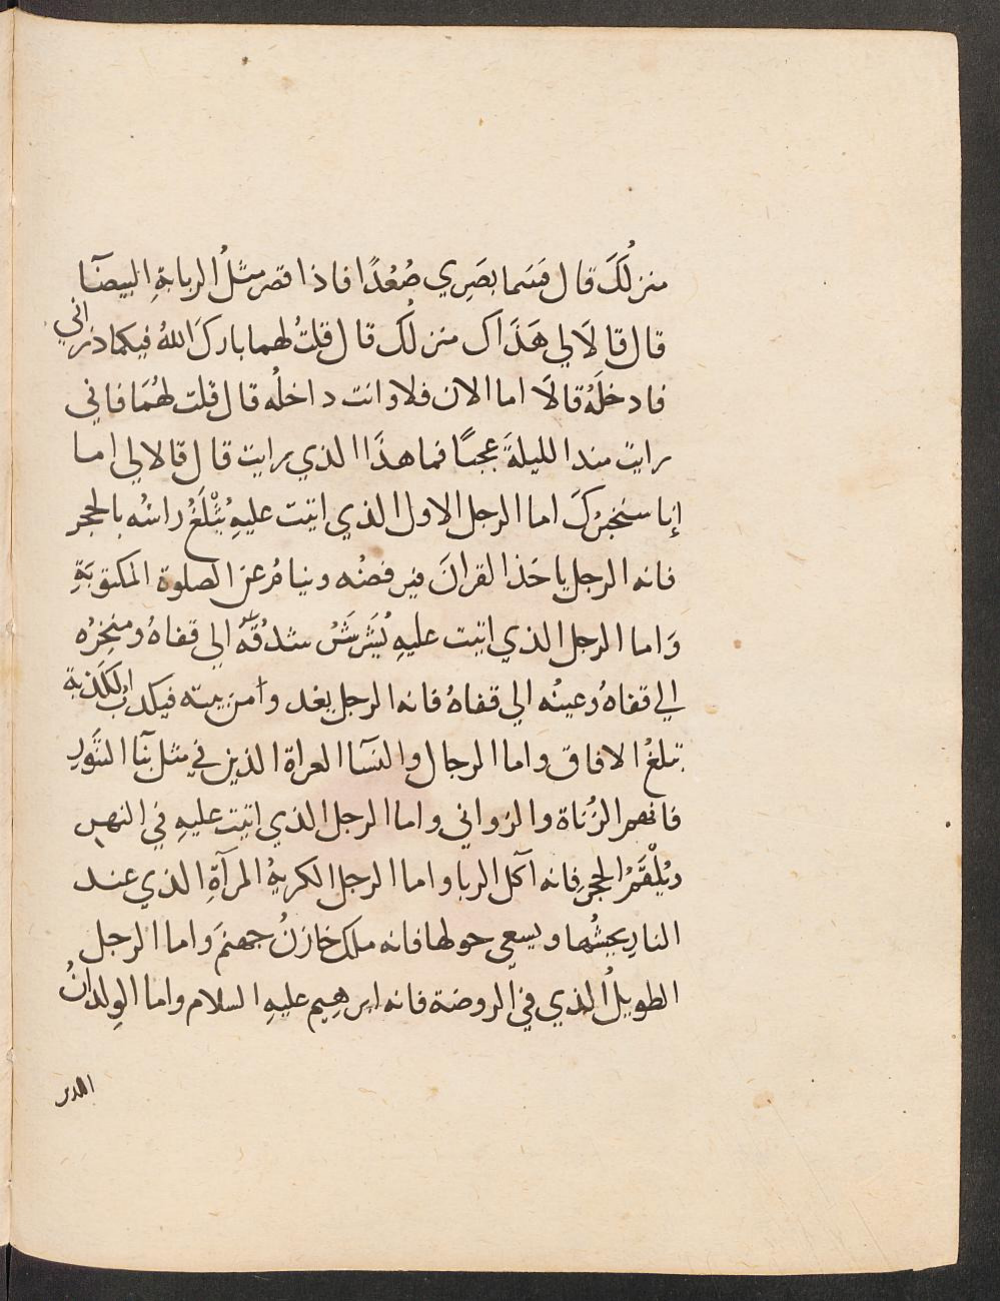 منزلُكَ قال فسَما بصَري صُعُدًا فاذا قصر مثلُ الربابةِ البيضآا
قال قالَا لي هَذَاك منزلُك قال قلتُ لهما بارَكَ اللهُ فيكما ذراني
فادخلَهُ قالَا اما الان فلا وانت داخلُه قال قلت لهُمَا فاني
رايت منذ الليلةَ عجبًا فما هذَا الذي رايت قال قالا لي اما
إنا سنخبرُكَ اما الرجل الاول الذي اتيت عليهِ يُثْلَغُ راسُه بالحجر
فانه الرجل ياخذ القرانَ فيرفضُه وينامُ عن الصلوة المكتوبَةِ
وَاما الرجل الذي اتيت عليهِ يُشَرشَرُ شدقُهُ الي قفاهُ ومنخِرُه
الي قفاهُ وعينُه الي قفاهُ فانه الرجل يغدوا من بيته فيكذبُ الكَذبة
تبلغُ الافاق واما الرجال والنسآا العراة الذين في مثل بنآا التنَّورِ
فانهم الزُناة والزواني واما الرجل الذي اتيت عليهِ في النهر
ويُلْقَمُ الحجر فانه آكل الربا واما الرجل الكريهُ المرآةِ الذي عند
النارِ يحشُها ويسعي حولها فانه ملك خازنُ جهنمَ واما الرجل
الطويلُ الذي في الروضة فانه ابرهيم عليهِ السلام واما الوِلدانُ
الذين